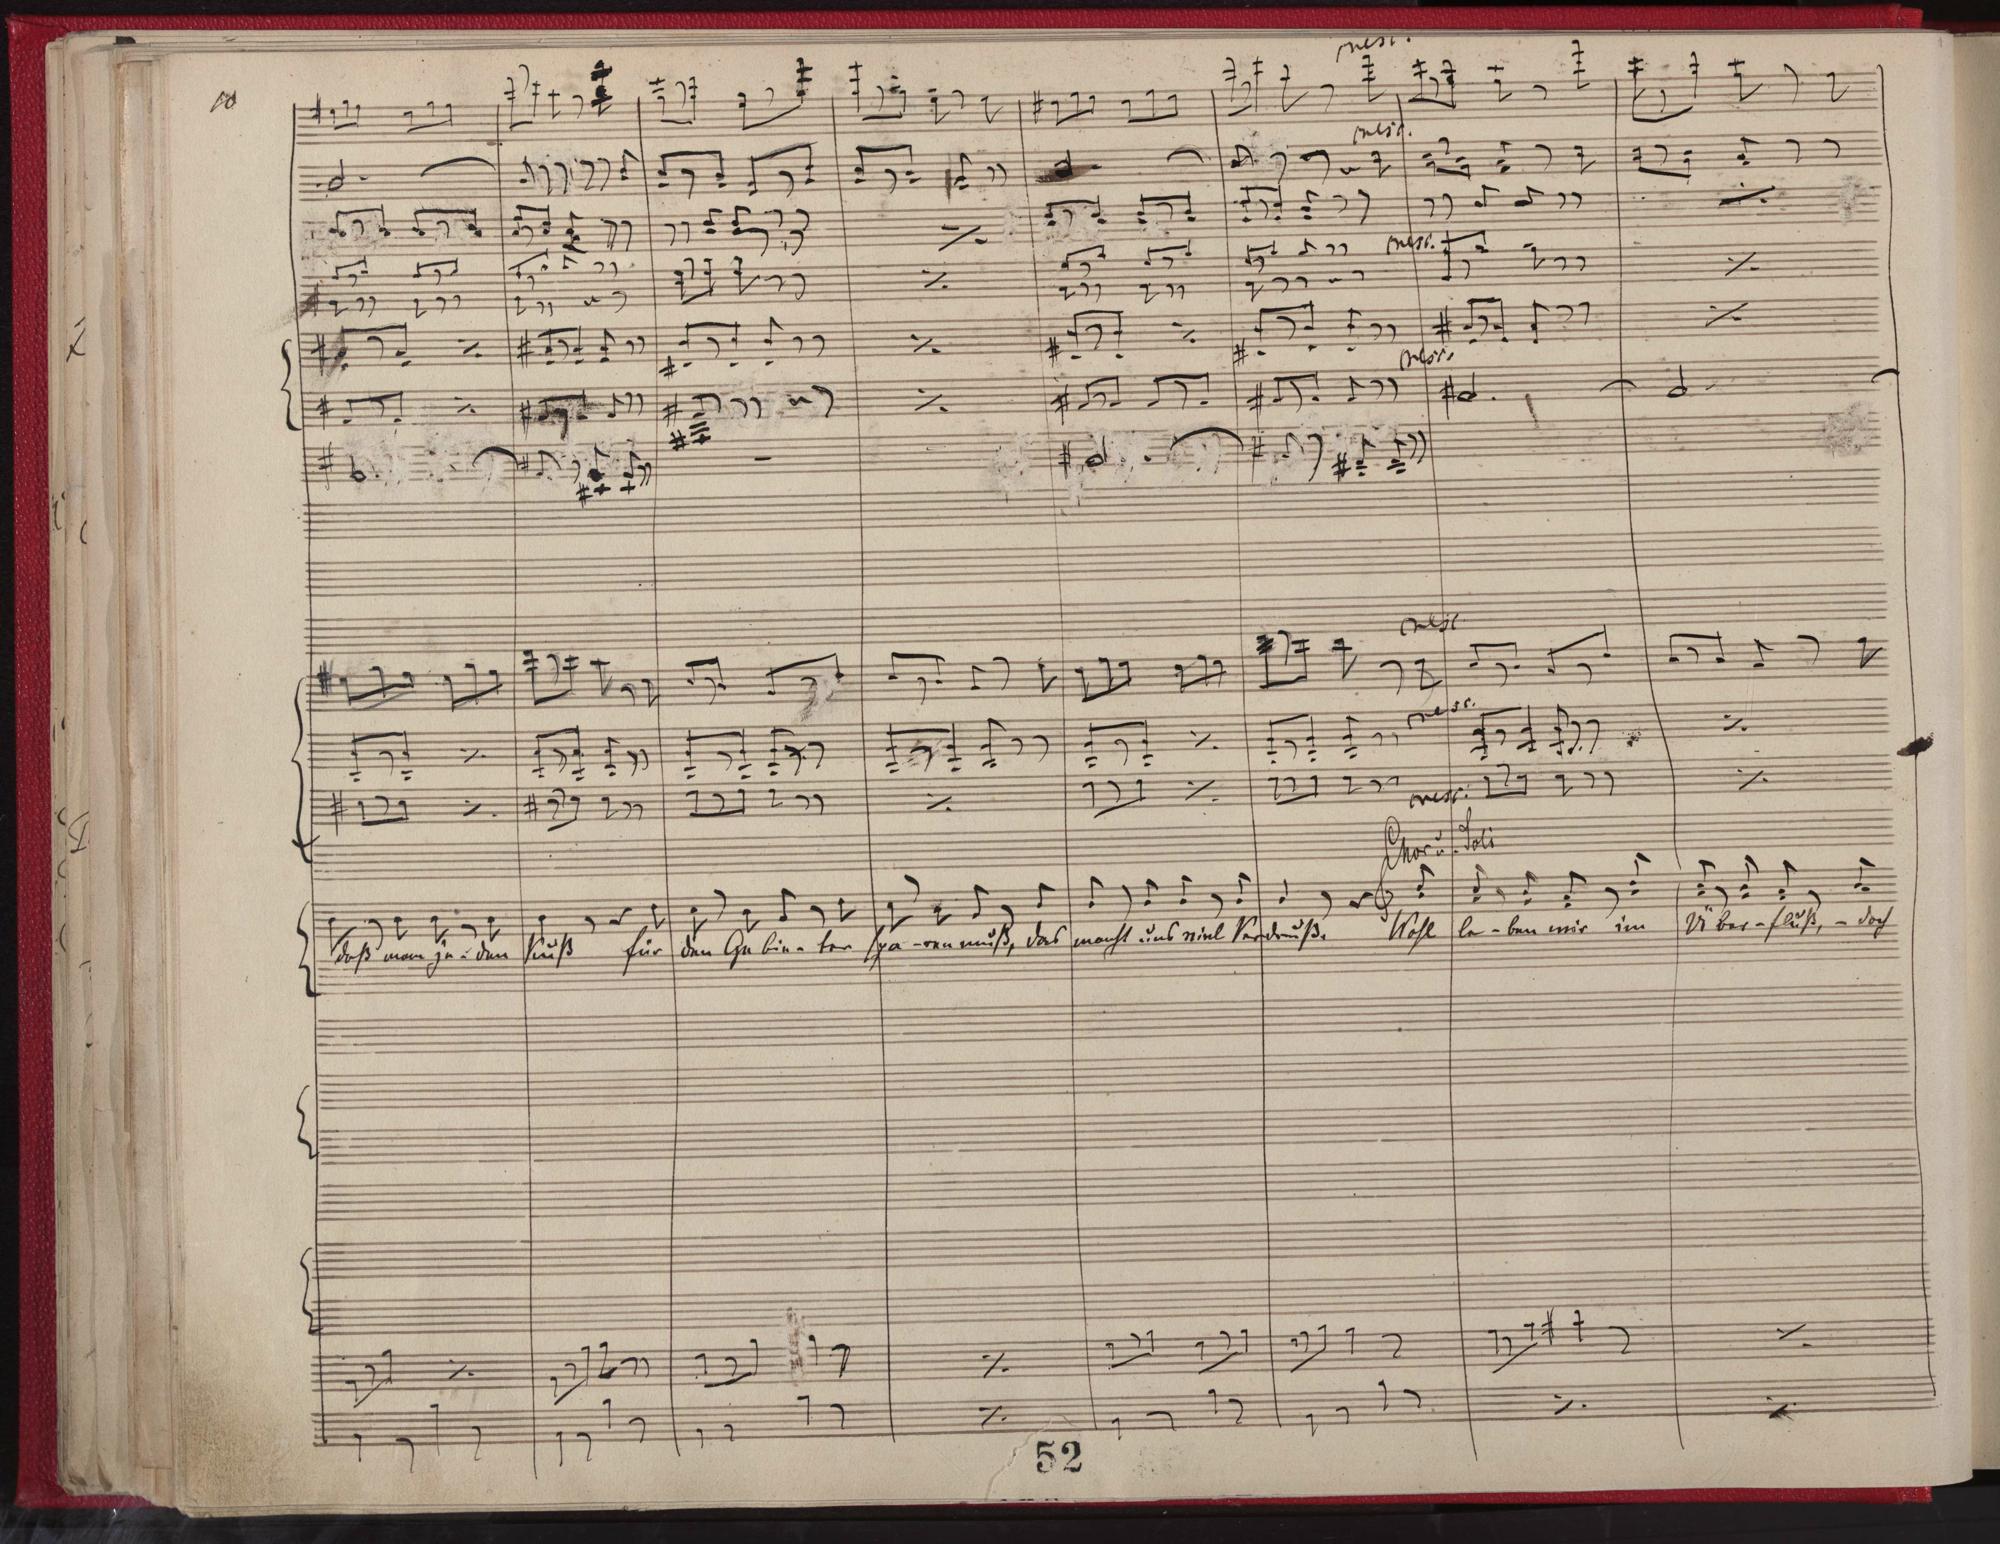 10
cresc.
cresc.
cresc.
cresc.
cresc.
cresc.
cresc.
Chor u. Soli
daß man je - den Kuß für den Gebie - ter spa - ren muß, das macht uns viel Verdruß. Wohl le - ben wir im Über - fluß, - doch
52